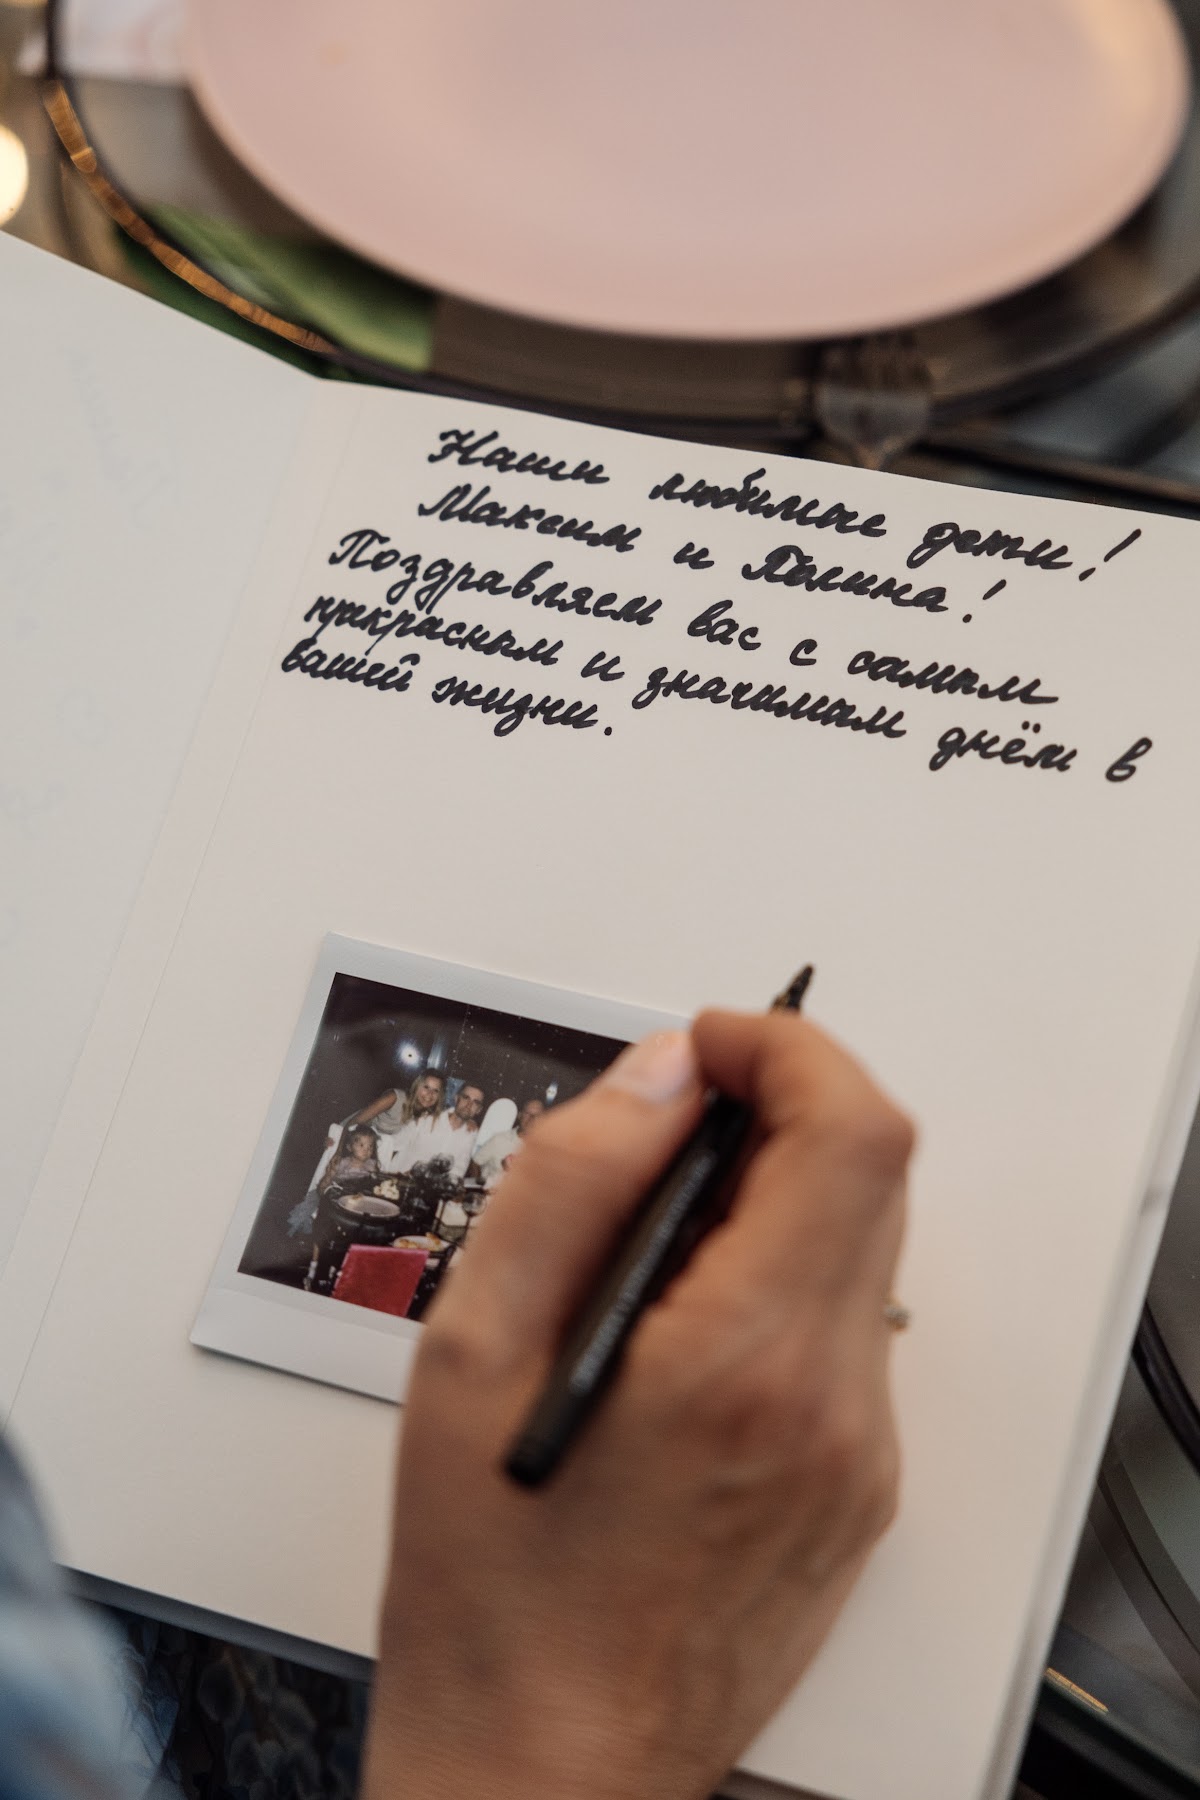 Наши любимые дети!
Максим и Полина!
Поздравляем вас с самым
прекрасным и значимым днём в
вашей жизни.